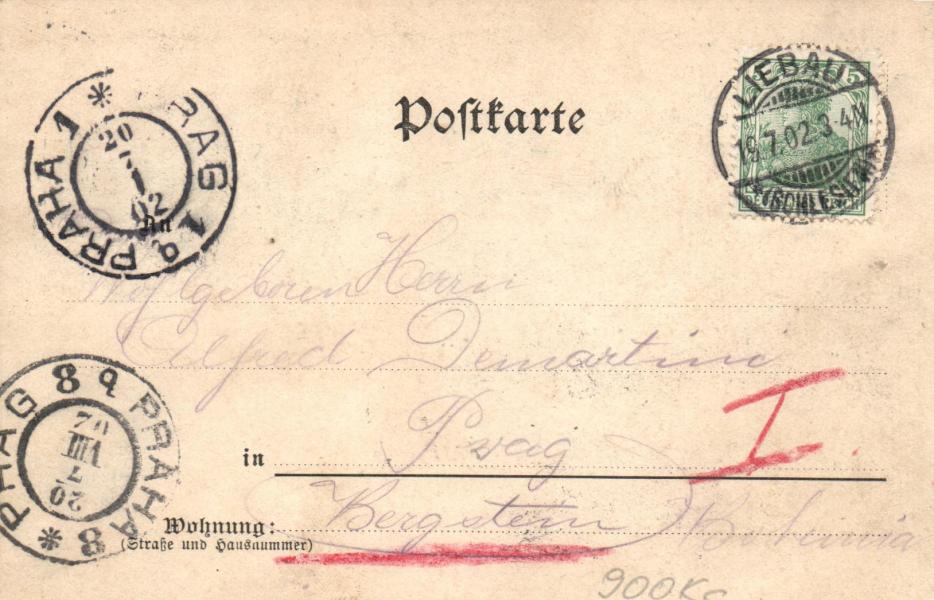 Postkarte
LIEBAU
19.7.02.3-4N.
(SCHLESIEN)
5
PRAG 1
PRAHA 1
20
02
An
Wohlgeboren Herrn
Alfred Demartini
in Prag I.
Wohnung: Bergstein Bohemia
(Straße und Hausnummer)
PRAG 8
PRAHA 8
20
7
VIII
02
900Kč